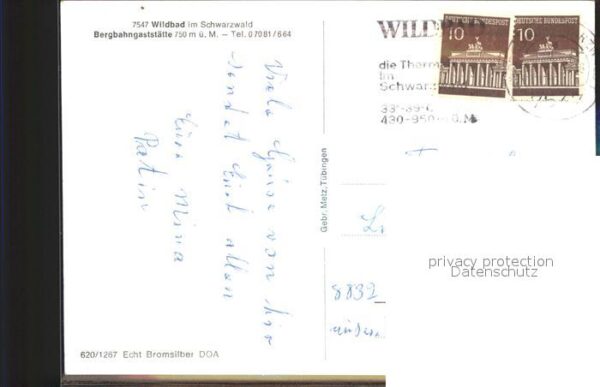 7547 Wildbad im Schwarzwald
Bergbahngaststätte 750 m ü. M. – Tel. 07081/664
WILD
die Therm
im
Schwar
33°-39°
430-950 ü.M.
DEUTSCHE BUNDESPOST
10
DEUTSCHE BUNDESPOST
10
Viele Grüsse von hier
sendet Euch allen
Eure Mina
Patin
Gebr. Metz, Tübingen
8832
privacy protection
Datenschutz
620/1267 Echt Bromsilber DOA